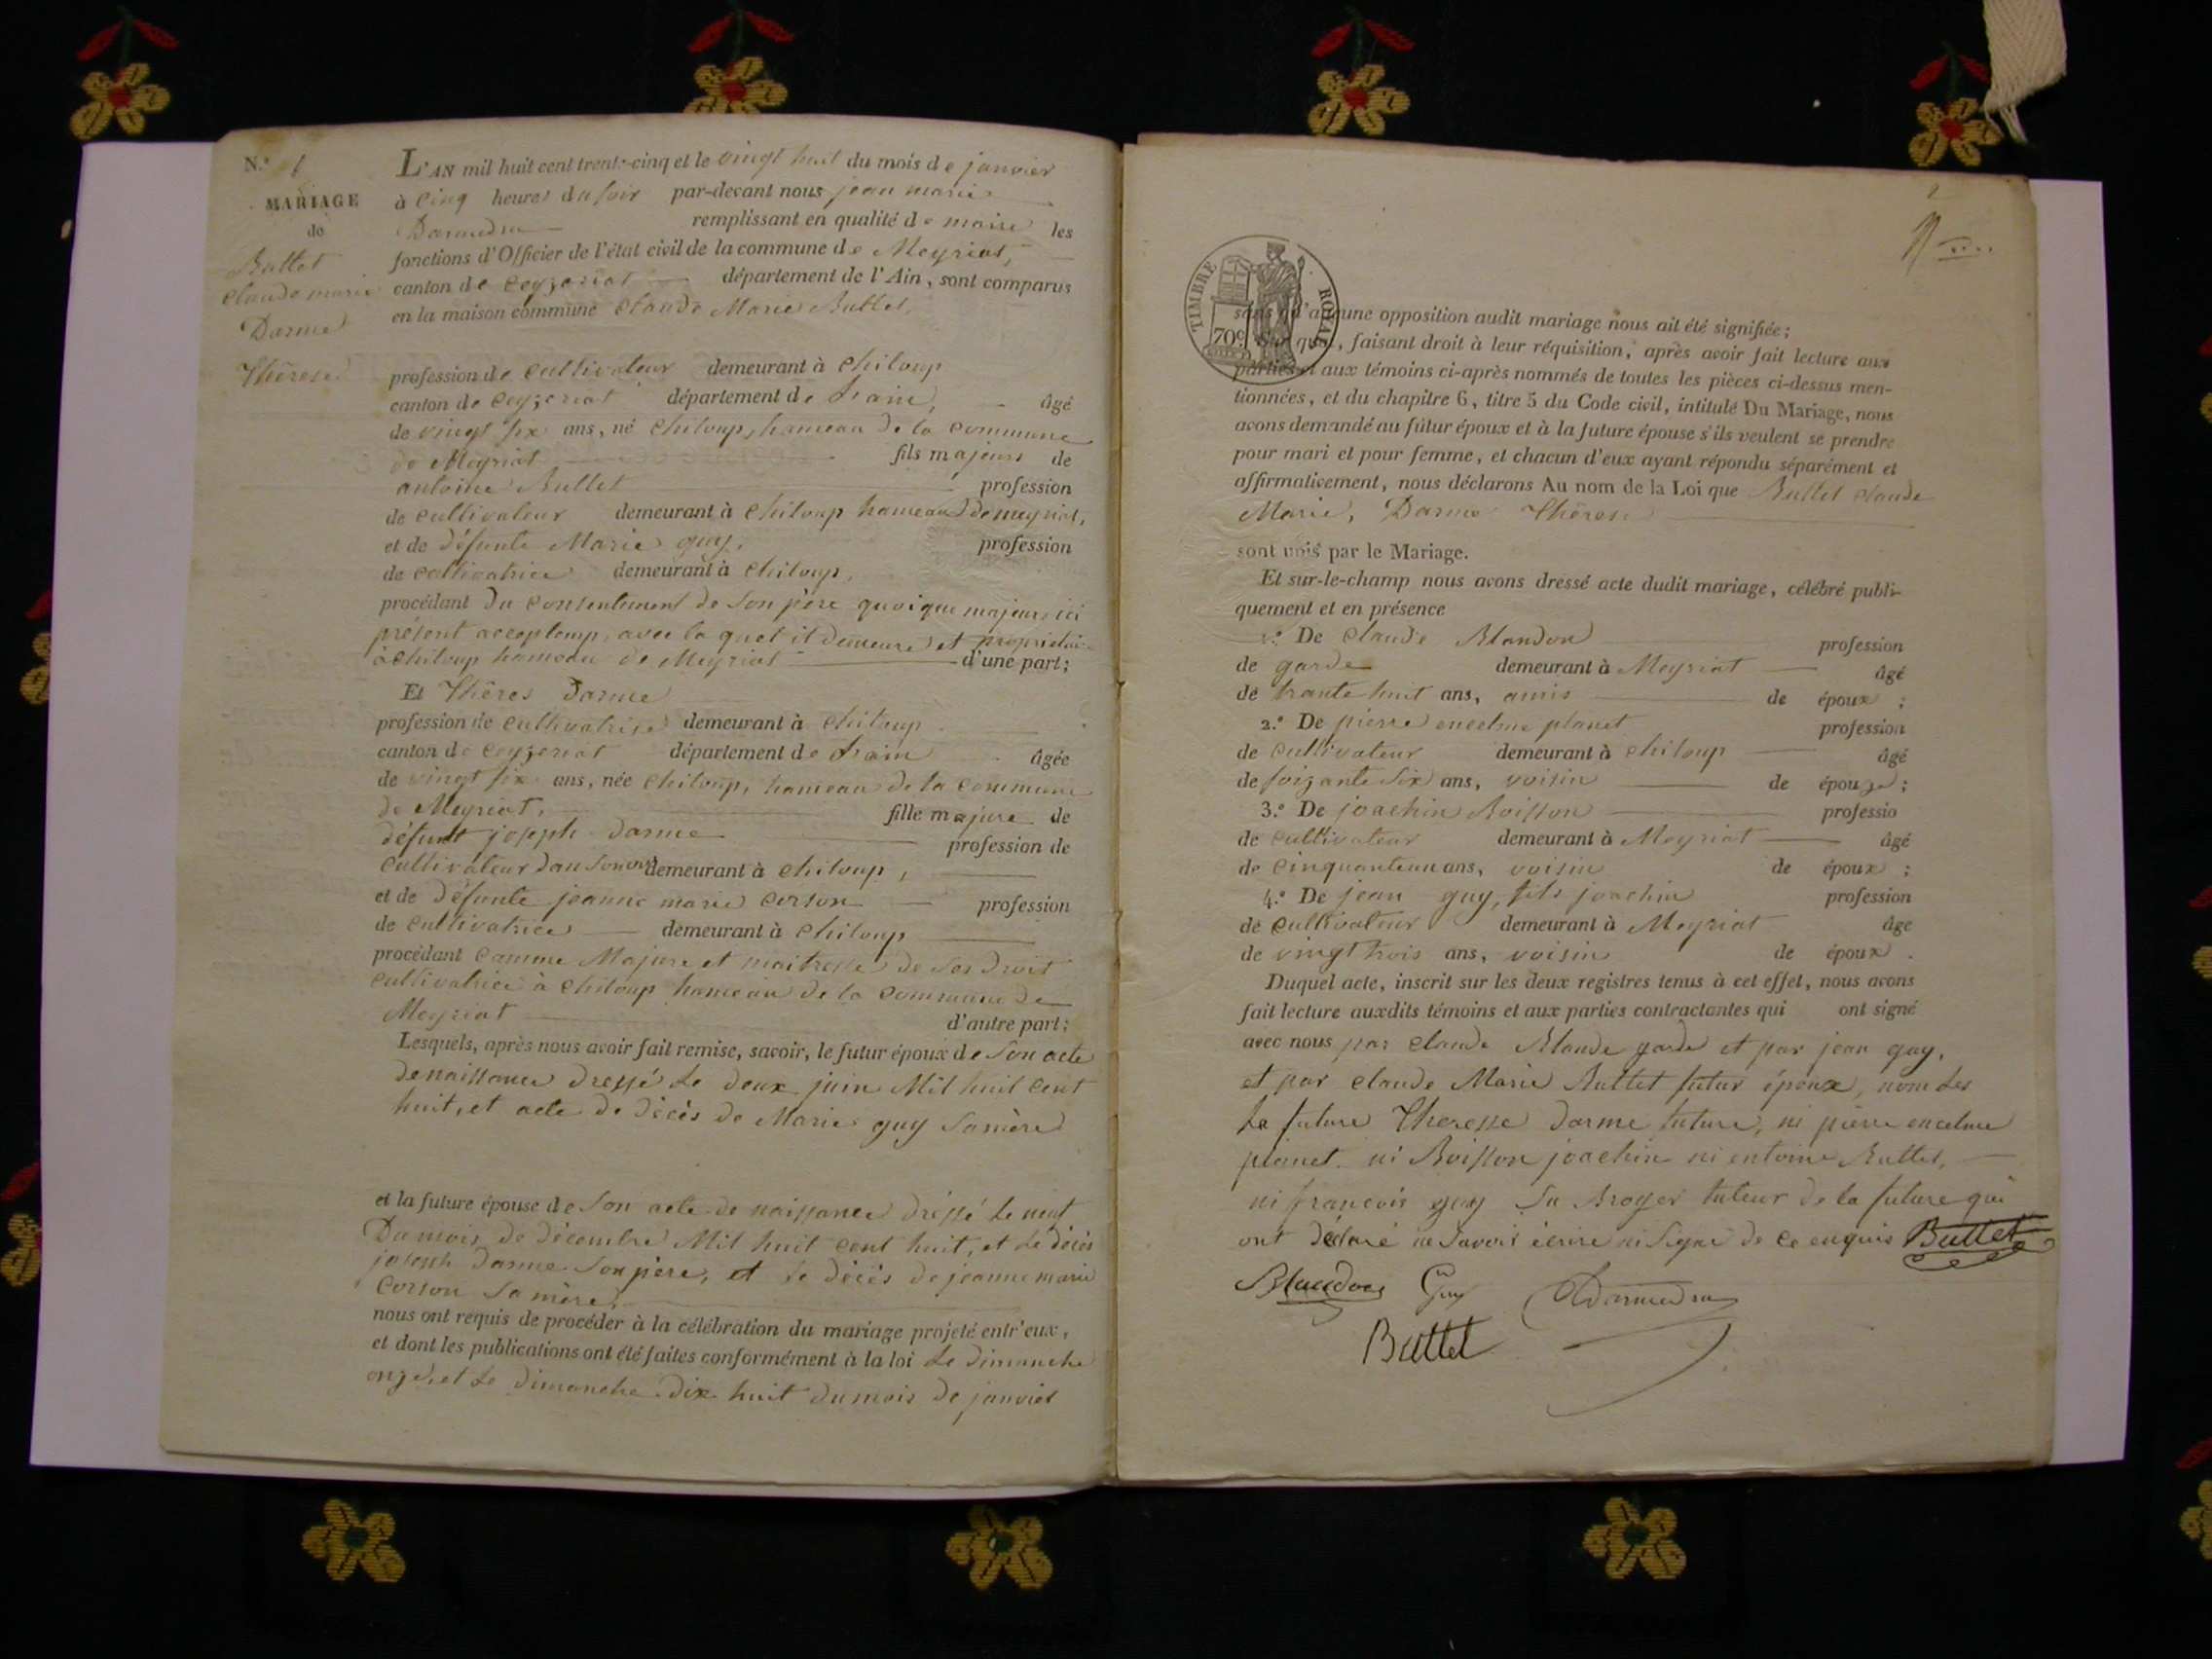 N.º 1
MARIAGE
de
Buttet
claude marie
Darme
Thérese
L'AN mil huit cent trente-cinq et le vingt huit du mois de janvier
à cinq heures du soir par-devant nous jean marie
remplissant en qualité de maire les
fonctions d'Officier de l'état civil de la commune de Meyriat,
canton de Ceyzeriat département de l'Ain, sont comparus
en la maison commune claude Marie Buttet,
profession de cultivateur demeurant à chiloup
canton de Ceyzeriat département de Lain, âgé
de vingt six ans, né chiloup, hameau de la commune
de Meyriat fils majeur de
antoine Buttet profession
de cultivateur demeurant à chiloup hameau de meyriat,
et de défunte Marie guy, profession
de cultivatrice demeurant à chiloup,
procédant du consentement de son père quoique majeur, ici
présent avec la quel il demeure et
à chiloup hameau de Meyriat d'une part;
Et Théres Darme
profession de cultivatrise demeurant à chiloup
canton de ceyzeriat département de Lain âgée
de vingt six ans, née chiloup, hameau de la commune
de Meyriat, fille majure de
défunt joseph darme profession de
cultivateur demeurant à chiloup,
et de défunte jeanne marie corson profession
de cultivatrice demeurant à chiloup
procédant comme Majure et maitresse de ses droit
cultivatrice à chiloup hameau de la commune de
Meyriat d'autre part;
Lesquels, après nous avoir fait remise, savoir, le futur époux de son acte
de naissance dressé le deux juin Mil huit cent
huit, et acte de décès de Marie guy samère
et la future épouse de son acte de naissance dressé le neuf
Du mois de décembre Mil huit cent huit, et le décès
joseph darme son père, et le décès de jeanne marie
corson sa mère,
nous ont requis de procéder à la célébration du mariage projeté entr'eux,
et dont les publications ont été faites conformément à la loi le dimanche
onze, et le dimanche dix huit du mois de janvier
TIMBRE ROYAL
70c
sans qu'aucune opposition audit mariage nous ait été signifiée;
que, faisant droit à leur réquisition, après avoir fait lecture aux
parties et aux témoins ci-après nommés de toutes les pièces ci-dessus men-
tionnées, et du chapitre 6, titre 5 du Code civil, intitulé Du Mariage, nous
avons demandé au futur époux et à la future épouse s'ils veulent se prendre
pour mari et pour femme, et chacun d'eux ayant répondu séparément et
affirmativement, nous déclarons Au nom de la Loi que Buttet claude
Marie, Darme Thérese
sont unis par le Mariage.
Et sur-le-champ nous avons dressé acte dudit mariage, célébré publi-
quement et en présence
1.º De claude Blandon profession
de garde demeurant à Meyriat âgé
de trante huit ans, amis de époux ;
2.º De pierre planet profession
de cultivateur demeurant à chiloup âgé
de soizante six ans, voisin de épouze ;
3.º De joachin Boisson professio
de cultivateur demeurant à Meyriat âgé
de cinquanteun ans, voisin de époux ;
4.º De jean guy, fils joachin profession
de cultivateur demeurant à Meyriat âge
de vingt trois ans, voisin de époux .
Duquel acte, inscrit sur les deux registres tenus à cet effet, nous avons
fait lecture auxdits témoins et aux parties contractantes qui ont signé
avec nous par claude Blande garde et par jean guy,
et par claude Marie Buttet futur époux, nom les
la future Theresse darme future, ni pierre
planet ni Boisson joachin ni entoine Buttet,
ni francois guy tuteur de la future qui
ont déclaré ne savoir écrire ni signé de ce enquis Buttet
Blandon Guy
Buttet